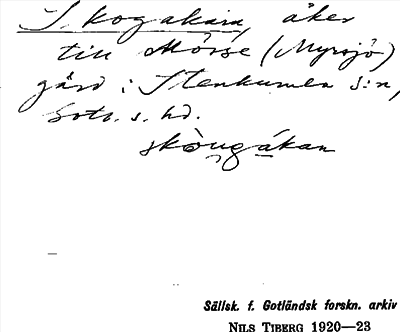 Skogakara, åker
till Mörse (Myrsjö)
gård i Stenkumla s:n,
Gotl. s. hd.
skòugákan
Sällsk. f. Gotländsk forskn. arkiv
NILS TIBERG 1920—23